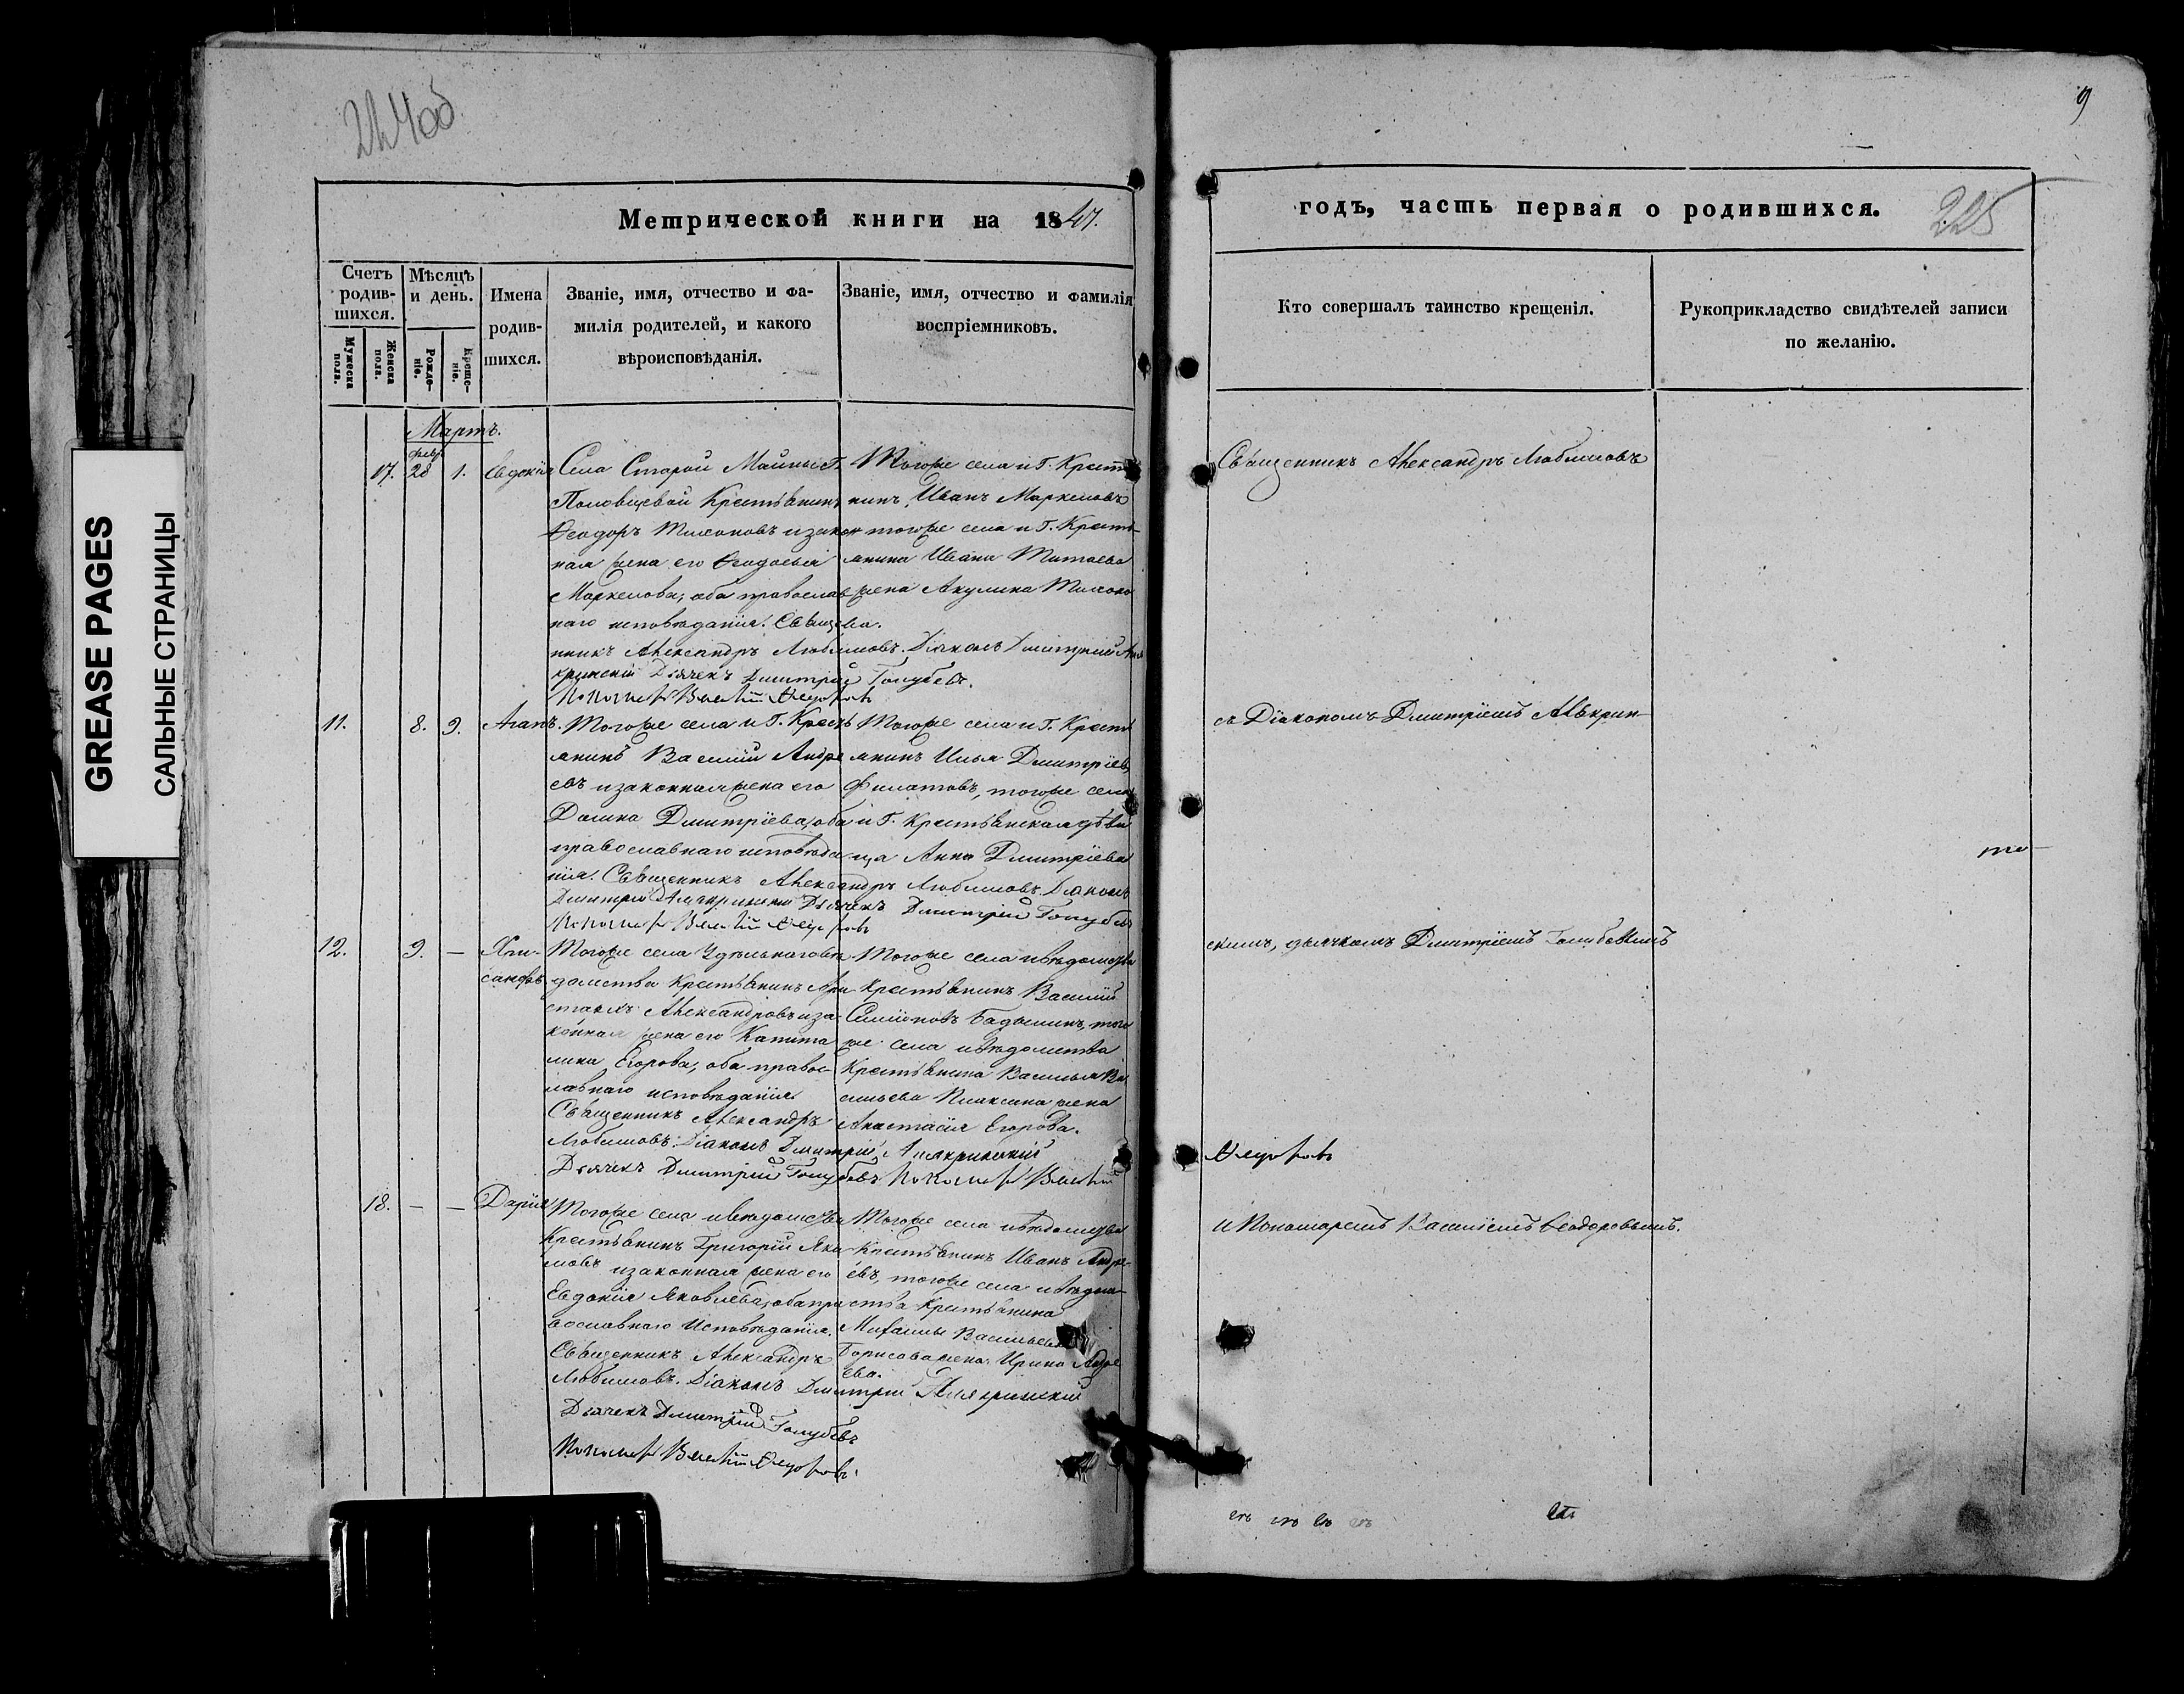 224об
9
225
GREASE PAGES
САЛЬНЫЕ СТРАНИЦЫ
Метрической книги на 1847.
годъ, часть первая о родившихся.
Счетъ родив-шихся.
Мужеска пола.
Женска пола.
Мѣсяцъ и день.
Рожде-ніе.
Креще-ніе.
Имена
родив-
шихся.
Званіе, имя, отчество и фа-
милія родителей, и какого
вѣроисповѣданія.
Званіе, имя, отчество и фамилія
воспріемниковъ.
Кто совершалъ таинство крещенія.
Рукоприкладство свидѣтелей записи
по желанію.
Мартъ.
февр.
17. 28 1. Евдокія
Села Старой Майны Г.
Половцевой Крестьянинъ
Ѳеодоръ Тихоновъ и закон
ная жена его Ѳеодосья
Маркелова, оба православ
наго исповѣданія. Свяще
нникъ Александръ Любимовъ. Діаконъ Дмитрій
Дьячекъ Дмитрій Голубевъ.
Пономарь Василій Ѳедоровъ
Тогоже села и Г. Крестья
нинъ, Иванъ Маркеловъ
тогоже села и Г. Кресть-
янина Ивана Титаева
жена Акулина Тихоно
ва.
Священникъ Александръ Любимовъ
11. 8. 9. Агапъ.
Тогоже села и Г. Кресть
янинъ Василій Андре
евъ и законная жена его
Домна Дмитріева, оба
православнаго исповѣда
нія. Священникъ Александръ Любимовъ. Діаконъ
Дмитрій Алякринскій Дьячекъ Дмитрій Голубевъ
Пономарь Василій Ѳедоровъ
Тогоже села и Г. Кресть
янинъ Илья Дмитріевъ
Филатовъ, тогоже села
и Г. Крестьянская дѣви
ца Анна Дмитріева
съ Діакономъ Дмитріемъ Алякрин-
12. 9. — Хри-
санфъ
Тогоже села Удѣльнаговѣ
домства Крестьянинъ Ари
стархъ Александровъ иза
конная жена его Капито
лина Егорова, оба правос-
лавнаго исповѣданія.
Священникъ Александръ
Любимовъ. Діаконъ Дмитрій Алякринскій
Дьячекъ Дмитрій Голубевъ Пономарь Василій
Ѳедоровъ
Тогоже села ивѣдомства
Крестьянинъ Василій
Симіоновъ Бадынинъ, того
же села ивѣдомства
Крестьянина Василья Ва
сильева Плаксина жена
Анастасія Егорова.
скимъ, дьячкомъ Дмитріемъ Голубевымъ
18. — — Дарія
Тогоже села ивѣдомства
Крестьянинъ Григорій Яки
мовъ изаконная жена его
Евдокія Яковлева, оба пра
вославнаго Исповѣданія.
Священникъ Александръ
Любимовъ. Діаконъ Дмитрій Алякринскій
Дьячекъ Дмитрій Голубевъ
Пономарь Василій Ѳедоровъ.
Тогоже села ивѣдомства
Крестьянинъ Иванъ Андре-
евъ, тогоже села ивѣдом-
ства Крестьянина
Михаилы Васильева
Борисова жена Ирина Андре
ева.
и Пономаремъ Василіемъ Ѳеодоровымъ.